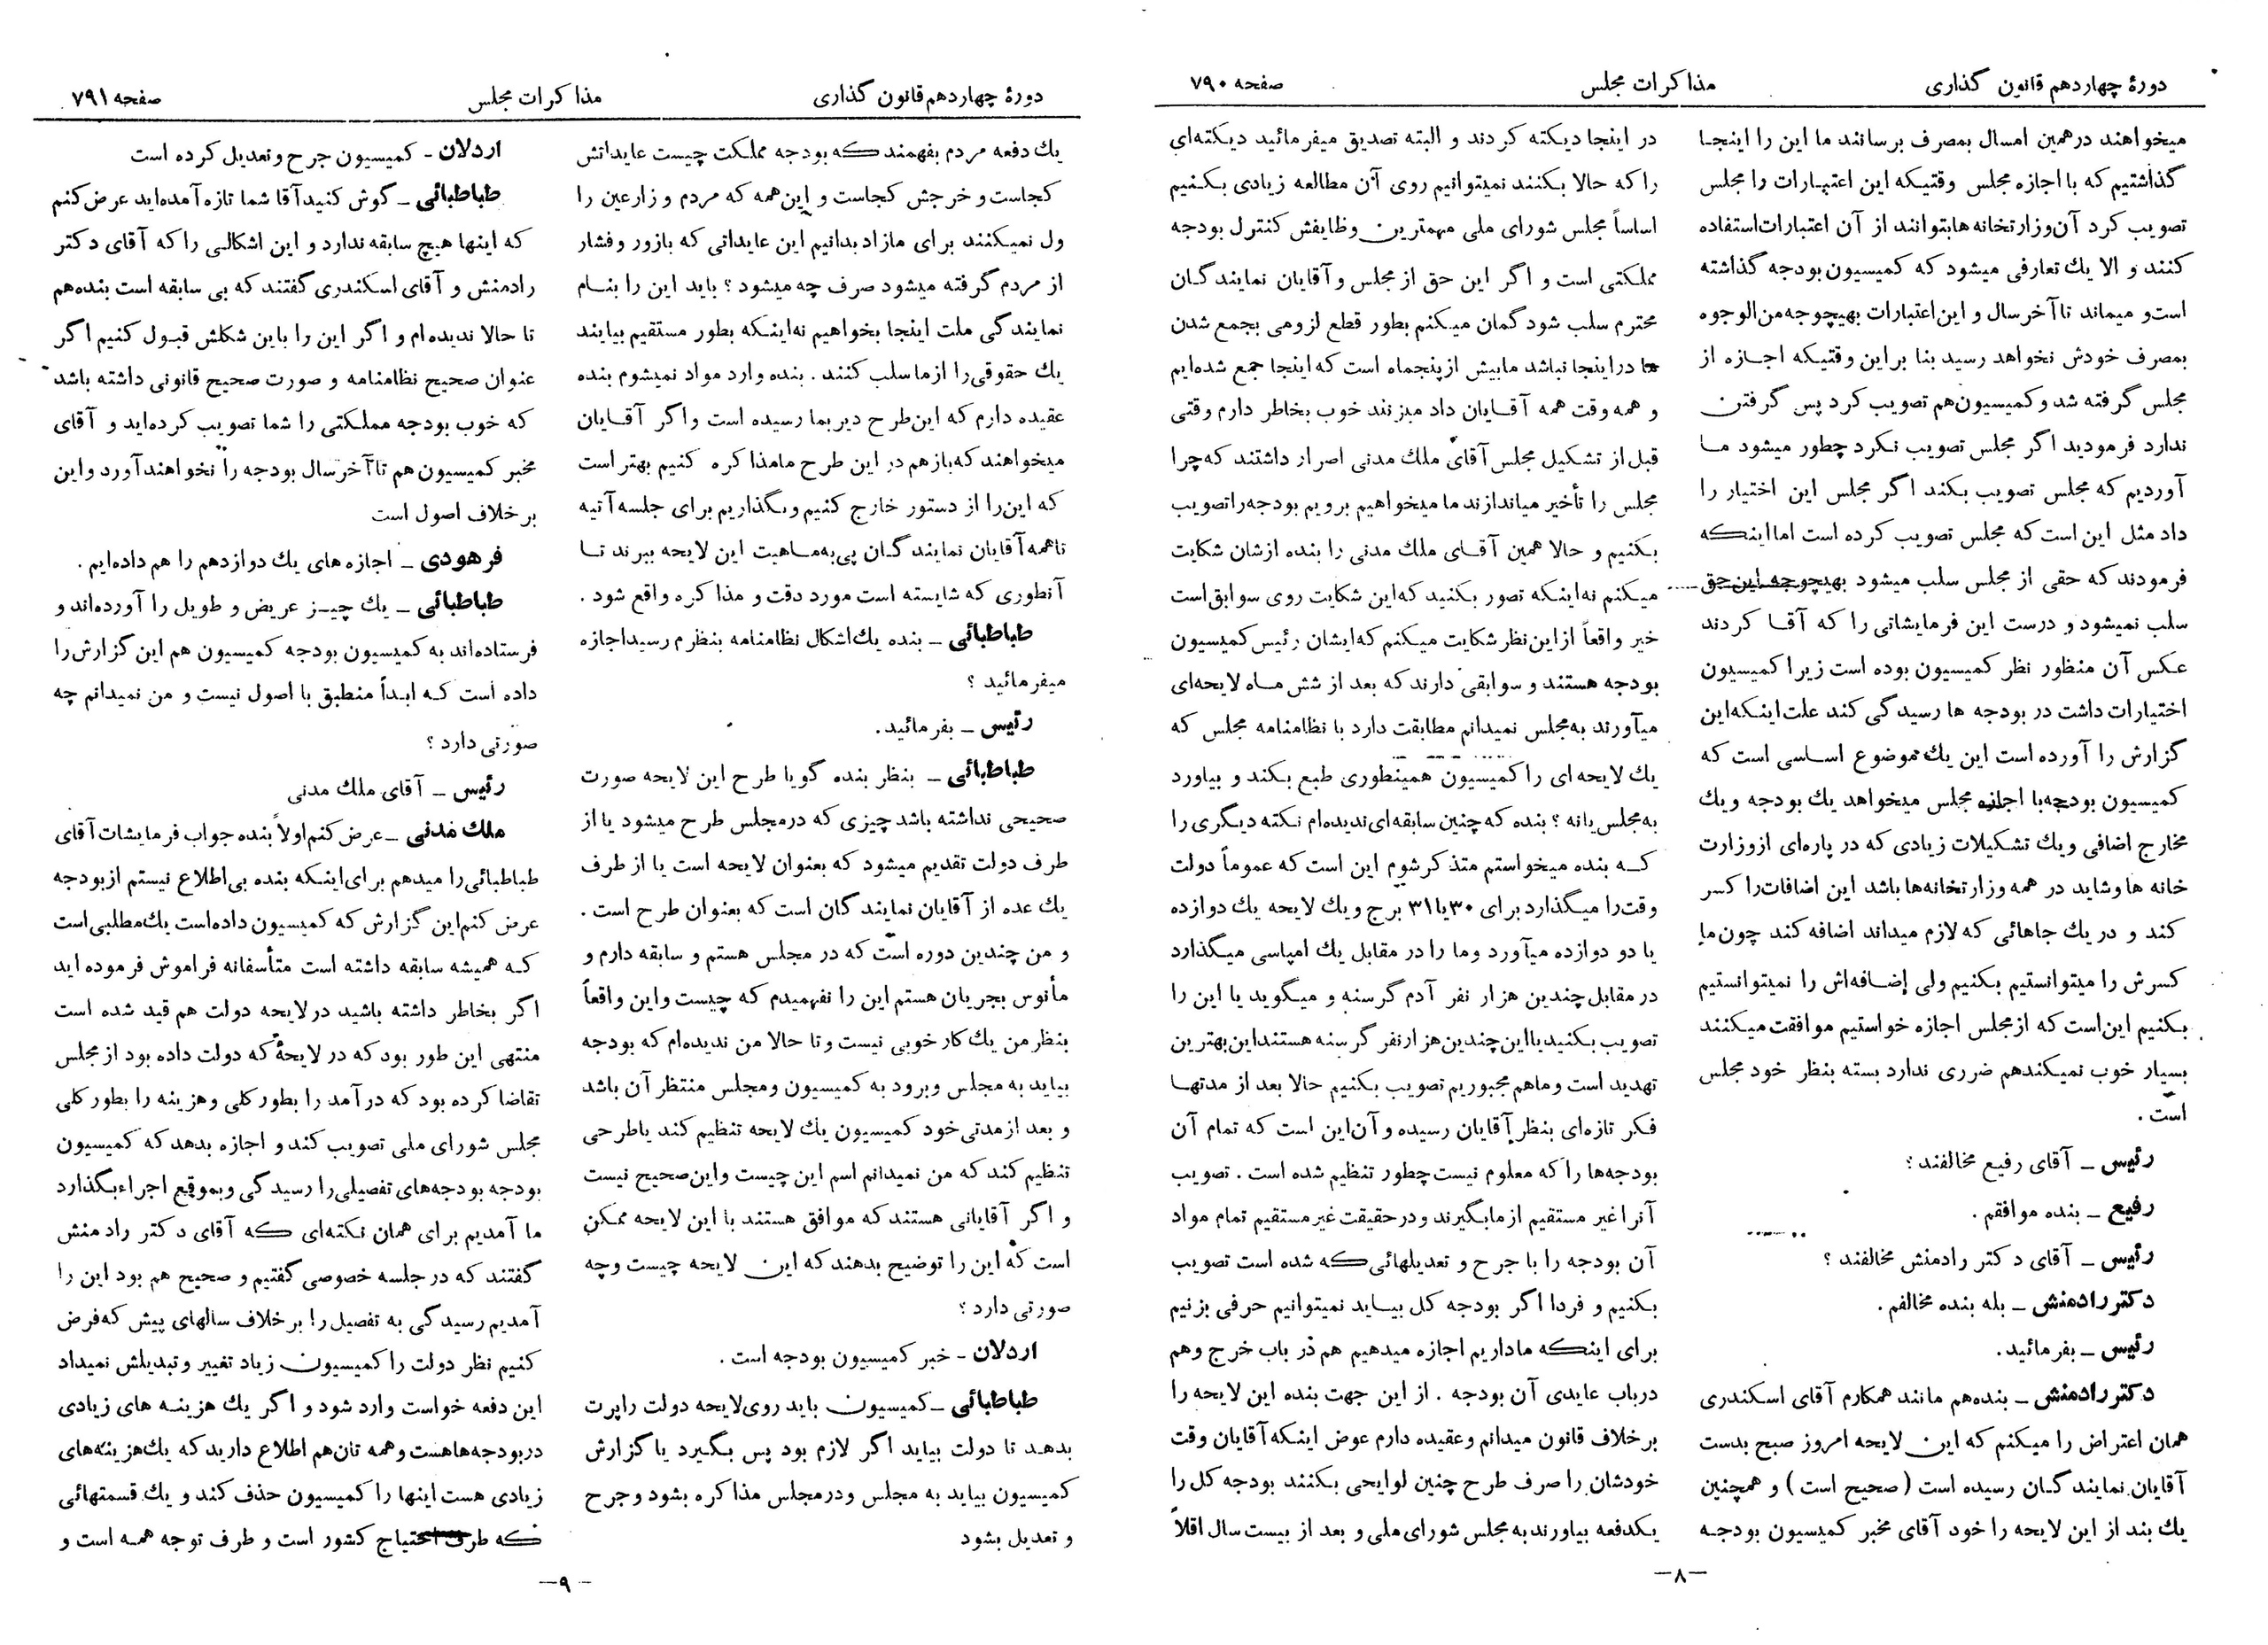 دورهٔ چهاردهم قانون گذاری
مذاکرات مجلس
صفحه ۷۹۰
میخواهند درهمین امسال بمصرف برسانند ما این را اینجا
گذاشتیم که با اجازه مجلس وقتیکه این اعتبارات را مجلس
تصویب کرد آن وزارتخانه‌ها بتوانند از آن اعتبارات استفاده
کنند و الا یك تعارفی میشود که کمیسیون بودجه گذاشته
است و میماند تا آخر سال و این اعتبارات بهیچوجه من الوجوه
بمصرف خودش نخواهد رسید بنا براین وقتیکه اجازه از
مجلس گرفته شد و کمیسیون هم تصویب کرد پس گرفتن
ندارد فرمودید اگر مجلس تصویب نکرد چطور میشود ما
آوردیم که مجلس تصویب بکند اگر مجلس این اختیار را
داد مثل این است که مجلس تصویب کرده است اما اینکه
فرمودند که حقی از مجلس سلب میشود بهیچوجه این حق
سلب نمیشود و درست این فرمایشاتی را که آقا کردند
عکس آن منظور نظر کمیسیون بوده است زیرا کمیسیون
اختیارات داشت در بودجه ها رسیدگی کند علت اینکه این
گزارش را آورده است این یك موضوع اساسی است که
کمیسیون بودجه با اجازه مجلس میخواهد یك بودجه و یك
مخارج اضافی و یك تشکیلات زیادی که در پاره‌ای از وزارت
خانه ها و شاید در همه وزارتخانه‌ها باشد این اضافات را کسر
کند و در یك جاهائی که لازم میداند اضافه کند چون ما
کسرش را میتوانستیم بکنیم ولی إضافه‌اش را نمیتوانستیم
بکنیم این است که از مجلس اجازه خواستیم موافقت میکنند
بسیار خوب نمیکند هم ضرری ندارد بسته بنظر خود مجلس
است .
رئیس – آقای رفیع مخالفند ؛
رفیع – بنده موافقم .
رئیس – آقای دکتر رادمنش مخالفند ؟
دکتر رادمنش – بله بنده مخالفم .
رئیس – بفرمائید .
دکتر رادمنش – بنده هم مانند همکارم آقای اسکندری
همان اعتراض را میکنم که این لایحه امروز صبح بدست
آقایان نمایندگان رسیده است (صحیح است) و همچنین
یك بند از این لایحه را خود آقای مخبر کمیسیون بودجه
در اینجا دیکته کردند و البته تصدیق میفرمائید دیکته‌ای
را که حالا بکنند نمیتوانیم روی آن مطالعه زیادی بکنیم
اساساً مجلس شورای ملی مهمترین وظایفش کنترل بودجه
مملکتی است و اگر این حق از مجلس و آقایان نمایندگان
محترم سلب شود گمان میکنم بطور قطع لزومی بجمع شدن
ما در اینجا نباشد ما بیش از پنجماه است که اینجا جمع شده‌ایم
و همه وقت همه آقایان داد میزنند خوب بخاطر دارم وقتی
قبل از تشکیل مجلس آقای ملك مدنی اصرار داشتند که چرا
مجلس را تأخیر میاندازند ما میخواهیم برویم بودجه را تصویب
بکنیم و حالا همین آقای ملك مدنی را بنده ازشان شکایت
میکنم نه اینکه تصور بکنید که این شکایت روی سوابق است
خیر واقعاً از این نظر شکایت میکنم که ایشان رئیس کمیسیون
بودجه هستند و سوابقی دارند که بعد از شش ماه لایحه‌ای
میآورند به مجلس نمیدانم مطابقت دارد با نظامنامه مجلس که
یك لایحه ای را کمیسیون همینطوری طبع بکند و بیاورد
به مجلس یا نه ؟ بنده که چنین سابقه‌ای ندیده‌ام نکته دیگری را
که بنده میخواستم متذکر شوم این است که عموماً دولت
وقت را میگذارد برای ۳۰ یا ۳۱ برج و یك لایحه یك دوازده
یا دو دوازده میآورد و ما را در مقابل یك امپاسی میگذارد
در مقابل چندین هزار نفر آدم گرسنه و میگوید یا این را
تصویب بکنید یا این چندین هزار نفر گرسنه هستند این بهترین
تهدید است و ما هم مجبوریم تصویب بکنیم حالا بعد از مدتها
فکر تازه‌ای بنظر آقایان رسیده و آن این است که تمام آن
بودجه‌ها را که معلوم نیست چطور تنظیم شده است . تصویب
آنرا غیر مستقیم از ما بگیرند و در حقیقت غیر مستقیم تمام مواد
آن بودجه را با جرح و تعدیلهائی که شده است تصویب
بکنیم و فردا اگر بودجه کل بیاید نمیتوانیم حرفی بزنیم
برای اینکه ما داریم اجازه میدهیم هم در باب خرج و هم
درباب عایدی آن بودجه . از این جهت بنده این لایحه را
بر خلاف قانون میدانم و عقیده دارم عوض اینکه آقایان وقت
خودشان را صرف طرح چنین لوایحی بکنند بودجه کل را
یکدفعه بیاورند به مجلس شورای ملی و بعد از بیست سال اقلاً
–۸–
دورهٔ چهاردهم قانون گذاری
مذاکرات مجلس
صفحه ۷۹۱
یك دفعه مردم بفهمند که بودجه مملکت چیست عایداتش
کجاست و خرجش کجاست و این همه که مردم و زارعین را
ول نمیکنند برای مازاد بدانیم این عایداتی که بازور و فشار
از مردم گرفته میشود صرف چه میشود ؟ باید این را بنام
نمایندگی ملت اینجا بخواهیم نه اینکه بطور مستقیم بیایند
یك حقوقی را از ما سلب کنند . بنده وارد مواد نمیشوم بنده
عقیده دارم که این طرح دیر بما رسیده است و اگر آقایان
میخواهند که باز هم در این طرح ما مذاکره کنیم بهتر است
که این را از دستور خارج کنیم و بگذاریم برای جلسه آتیه
تا همه آقایان نمایندگان پی به ماهیت این لایحه ببرند تا
آنطوری که شایسته است مورد دقت و مذاکره واقع شود .
طباطبائی – بنده یك اشکال نظامنامه بنظرم رسید اجازه
میفرمائید ؟
رئیس – بفرمائید .
طباطبائی – بنظر بنده گویا طرح این لایحه صورت
صحیحی نداشته باشد چیزی که در مجلس طرح میشود یا از
طرف دولت تقدیم میشود که بعنوان لایحه است یا از طرف
یك عده از آقایان نمایندگان است که بعنوان طرح است .
و من چندین دوره است که در مجلس هستم و سابقه دارم و
مأنوس بجریان هستم این را نفهمیدم که چیست و این واقعاً
بنظر من یك کار خوبی نیست و تا حالا من ندیده‌ام که بودجه
بیاید به مجلس و برود به کمیسیون و مجلس منتظر آن باشد
و بعد از مدتی خود کمیسیون یك لایحه تنظیم کند یا طرحی
تنظیم کند که من نمیدانم اسم این چیست و این صحیح نیست
و اگر آقایانی هستند که موافق هستند با این لایحه ممکن
است که این را توضیح بدهند که این لایحه چیست و چه
صورتی دارد ؟
اردلان - خبر کمیسیون بودجه است .
طباطبائی – کمیسیون باید روی لایحه دولت راپرت
بدهد تا دولت بیاید اگر لازم بود پس بگیرد یا گزارش
کمیسیون بیاید به مجلس و در مجلس مذاکره بشود و جرح
و تعدیل بشود
اردلان - کمیسیون جرح و تعدیل کرده است
طباطبائی – گوش کنید آقا شما تازه آمده‌اید عرض کنم
که اینها هیچ سابقه ندارد و این اشکالی را که آقای دکتر
رادمنش و آقای اسکندری گفتند که بی سابقه است بنده هم
تا حالا ندیده ام و اگر این را باین شکلش قبول کنیم اگر
عنوان صحیح نظامنامه و صورت صحیح قانونی داشته باشد
که خوب بودجه مملکتی را شما تصویب کرده‌اید و آقای
مخبر کمیسیون هم تا آخر سال بودجه را نخواهند آورد و این
بر خلاف اصول است
فرهودی – اجازه های یك دوازدهم را هم داده‌ایم .
طباطبائی – یك چیز عریض و طویل را آورده‌اند و
فرستاده‌اند به کمیسیون بودجه کمیسیون هم این گزارش را
داده است که ابداً منطبق با اصول نیست و من نمیدانم چه
صورتی دارد ؟
رئیس – آقای ملك مدنی
ملك مدنی – عرض کنم اولاً بنده جواب فرمایشات آقای
طباطبائی را میدهم برای اینکه بنده بی اطلاع نیستم از بودجه
عرض کنم این گزارش که کمیسیون داده است یك مطلبی است
که همیشه سابقه داشته است متأسفانه فراموش فرموده اید
اگر بخاطر داشته باشید در لایحه دولت هم قید شده است
منتهی این طور بود که در لایحهٔ که دولت داده بود از مجلس
تقاضا کرده بود که درآمد را بطور کلی و هزینه را بطور کلی
مجلس شورای ملی تصویب کند و اجازه بدهد که کمیسیون
بودجه بودجه‌های تفصیلی را رسیدگی و بموقع اجراء بگذارد
ما آمدیم برای همان نکته‌ای که آقای دکتر رادمنش
گفتند که در جلسه خصوصی گفتیم و صحیح هم بود این را
آمدیم رسیدگی به تفصیل را بر خلاف سالهای پیش که فرض
کنیم نظر دولت را کمیسیون زیاد تغییر و تبدیلش نمیداد
این دفعه خواست وارد شود و اگر یك هزینه های زیادی
در بودجه‌ها هست و همه تان هم اطلاع دارید که یك هزینه‌های
زیادی هست اینها را کمیسیون حذف کند و یك قسمتهائی
که طرف احتیاج کشور است و طرف توجه همه است و
–۹–